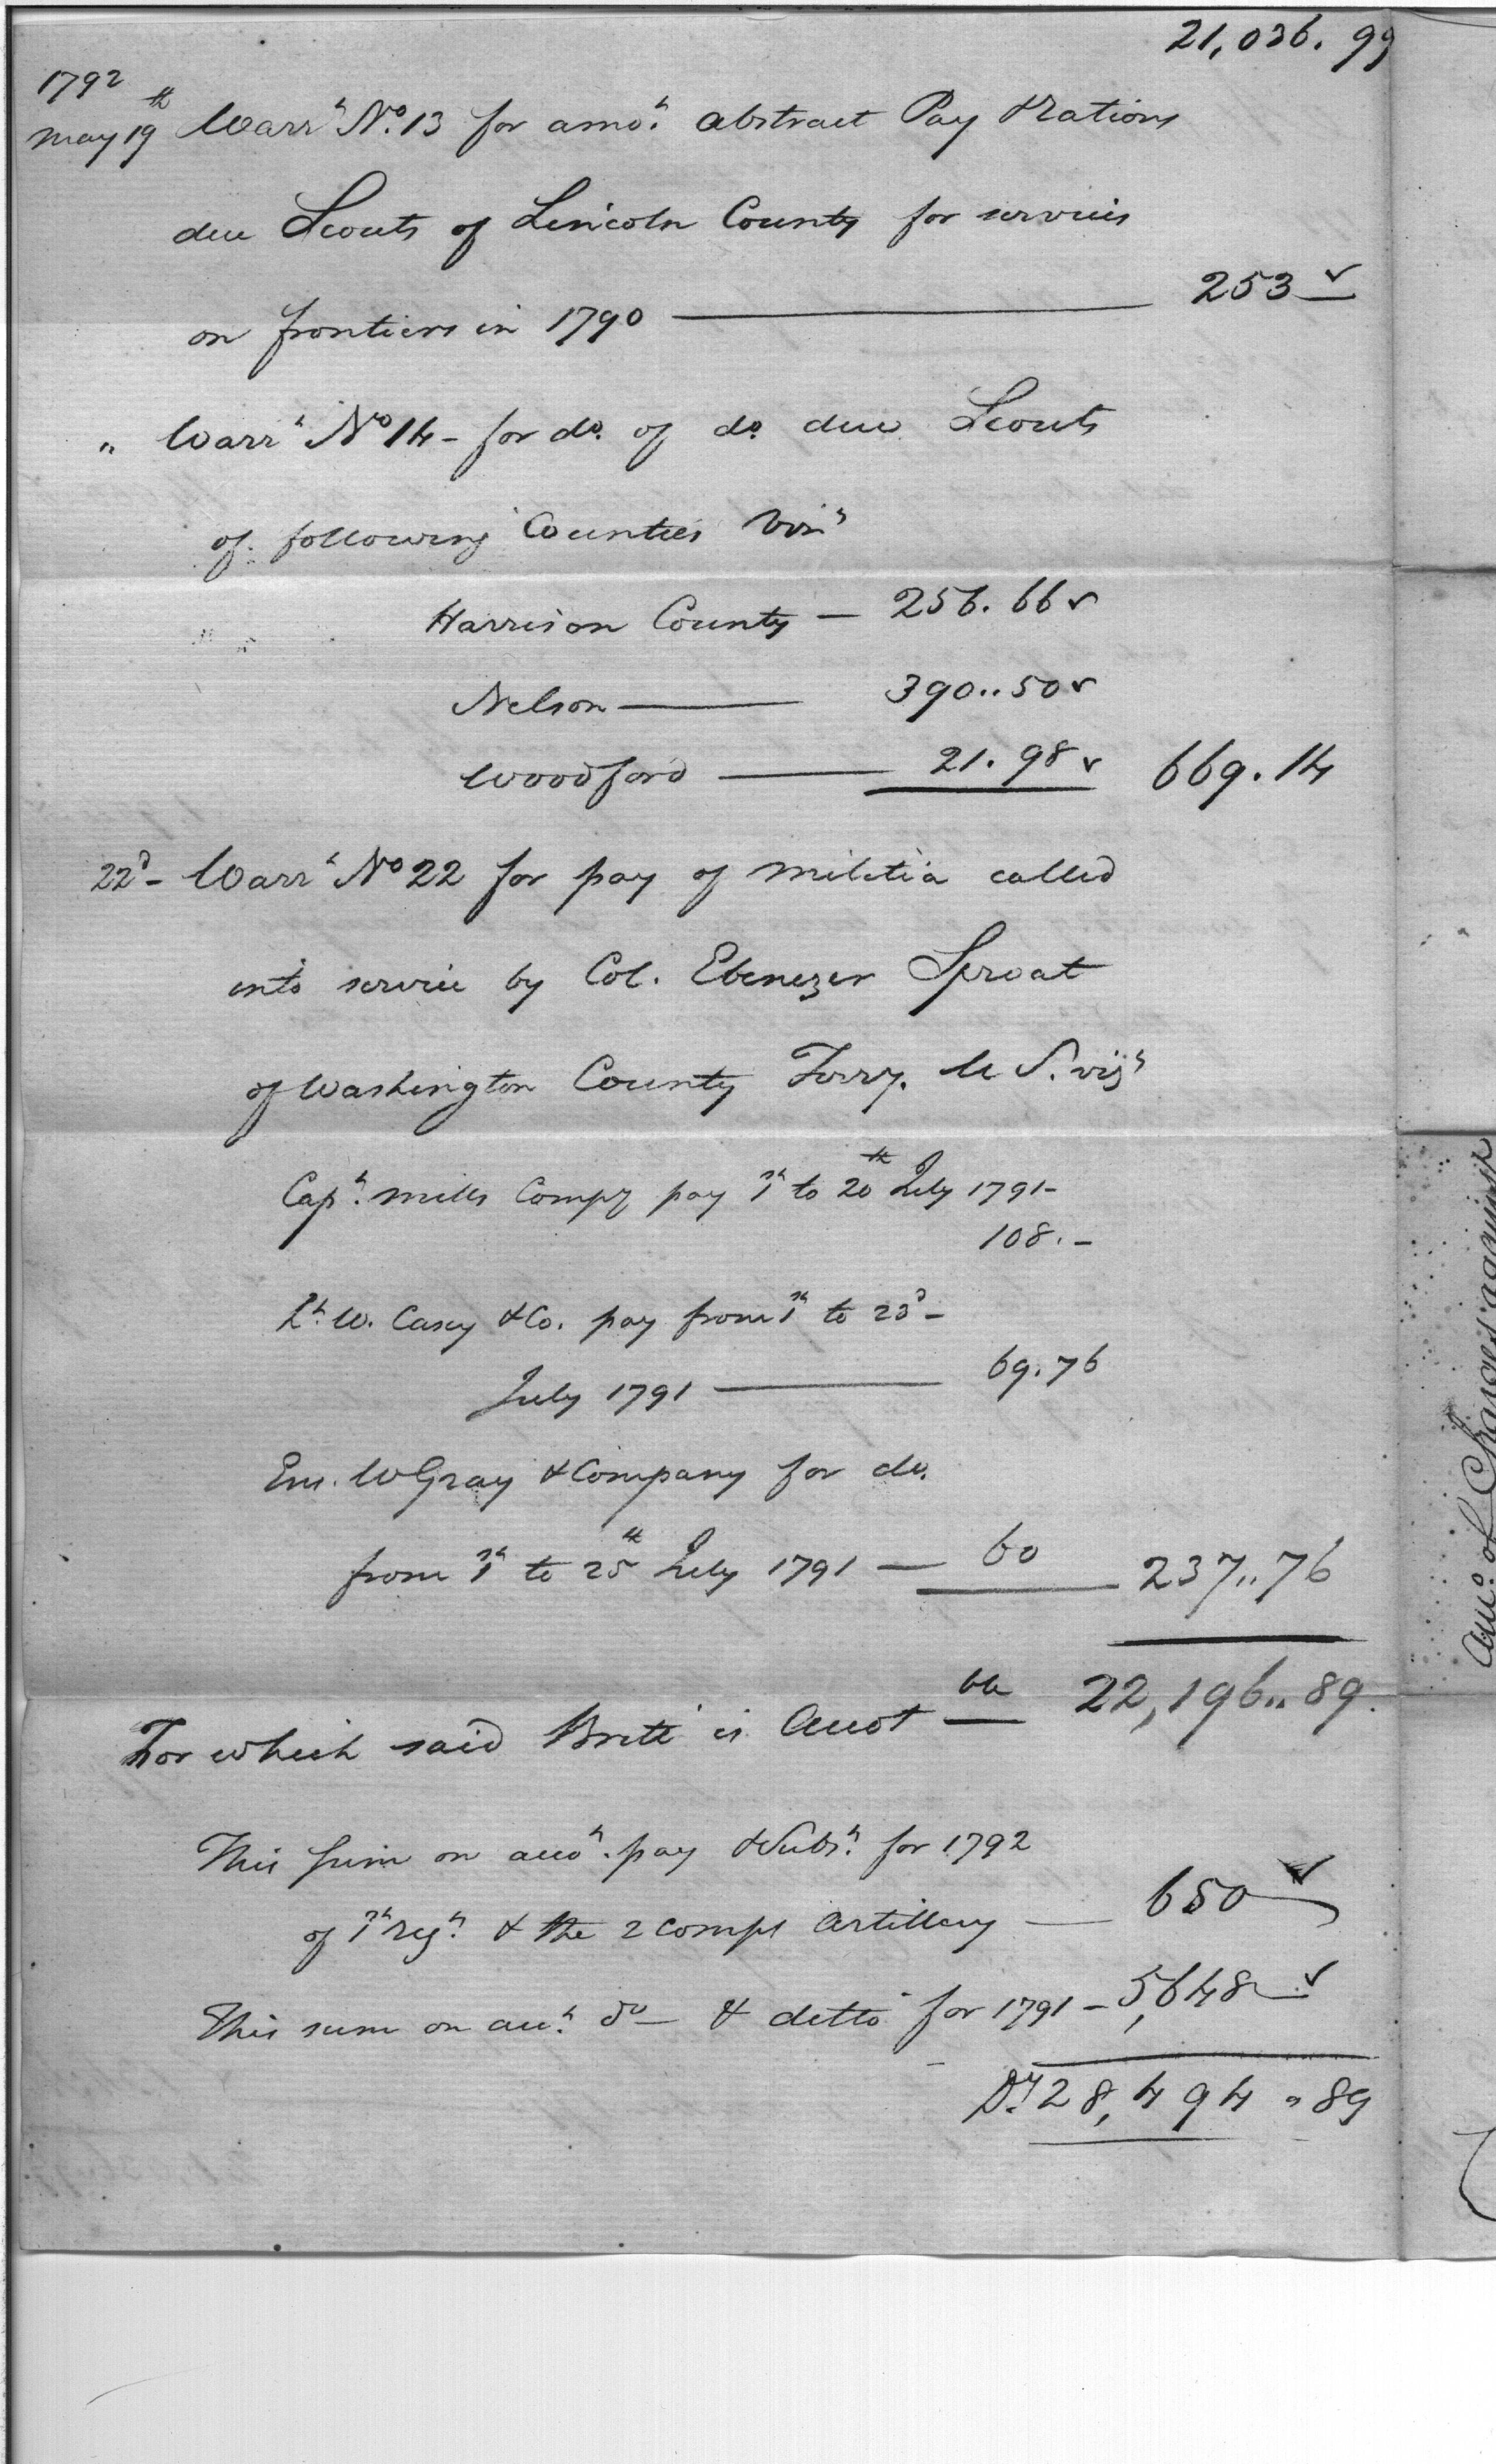 21,036. 99
1792
May 19th Warrt No. 13 for amot. abstract Pay & Rations
due Scouts of Lincoln County for services
on frontiers in 1790 — 253
" Warrt No 14 - for do. of do. due Scouts
of following Counties Vizt
Harrison County — 256. 66
Nelson — 390..50
Woodford — 21. 98 669. 14
22d - Warrt No 22 for pay of Militia called
into service by Col. Ebenezer Sproat
of Washington County Terry. U S. vizt
Capt. Mills Compy pay 1st to 20th July 1791-
108. -
Lt. W. Casey & Co. pay from 1st to 23d -
July 1791 — 69. 76
Ens. W Gray & Company for do.
from 1st to 25th July 1791 — 60 237..76
For which said Britt is Accot — 22,196..89.
This sum on accot. pay & Subst. for 1792
of 1st regt. & the 2 Comps Artillery — 650
This sum on acct. do - & ditto for 1791 - 5,648
Drs 28,494 " 89
Amo. of Charges against